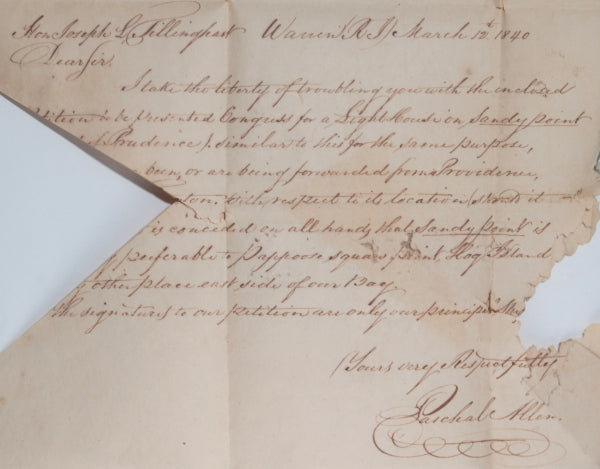 Hon Joseph L. Tillinghast Warren (R.I) March 12th 1840
Dear Sir.
I take the liberty of troubling you with the inclosed
tition to be presented Congress for a Light House on Sandy point
Prudence). similar to this for the same purpose,
been, or are being forwarded from Providence,
ton. With respect to its location, it
is conceded on all hands that Sandy point is
preferable to Pappoose squaw point, Hog Island
other place east side of our Bay
the signatures to our petition are only our
Yours very Respectfully
Paschal Allen.